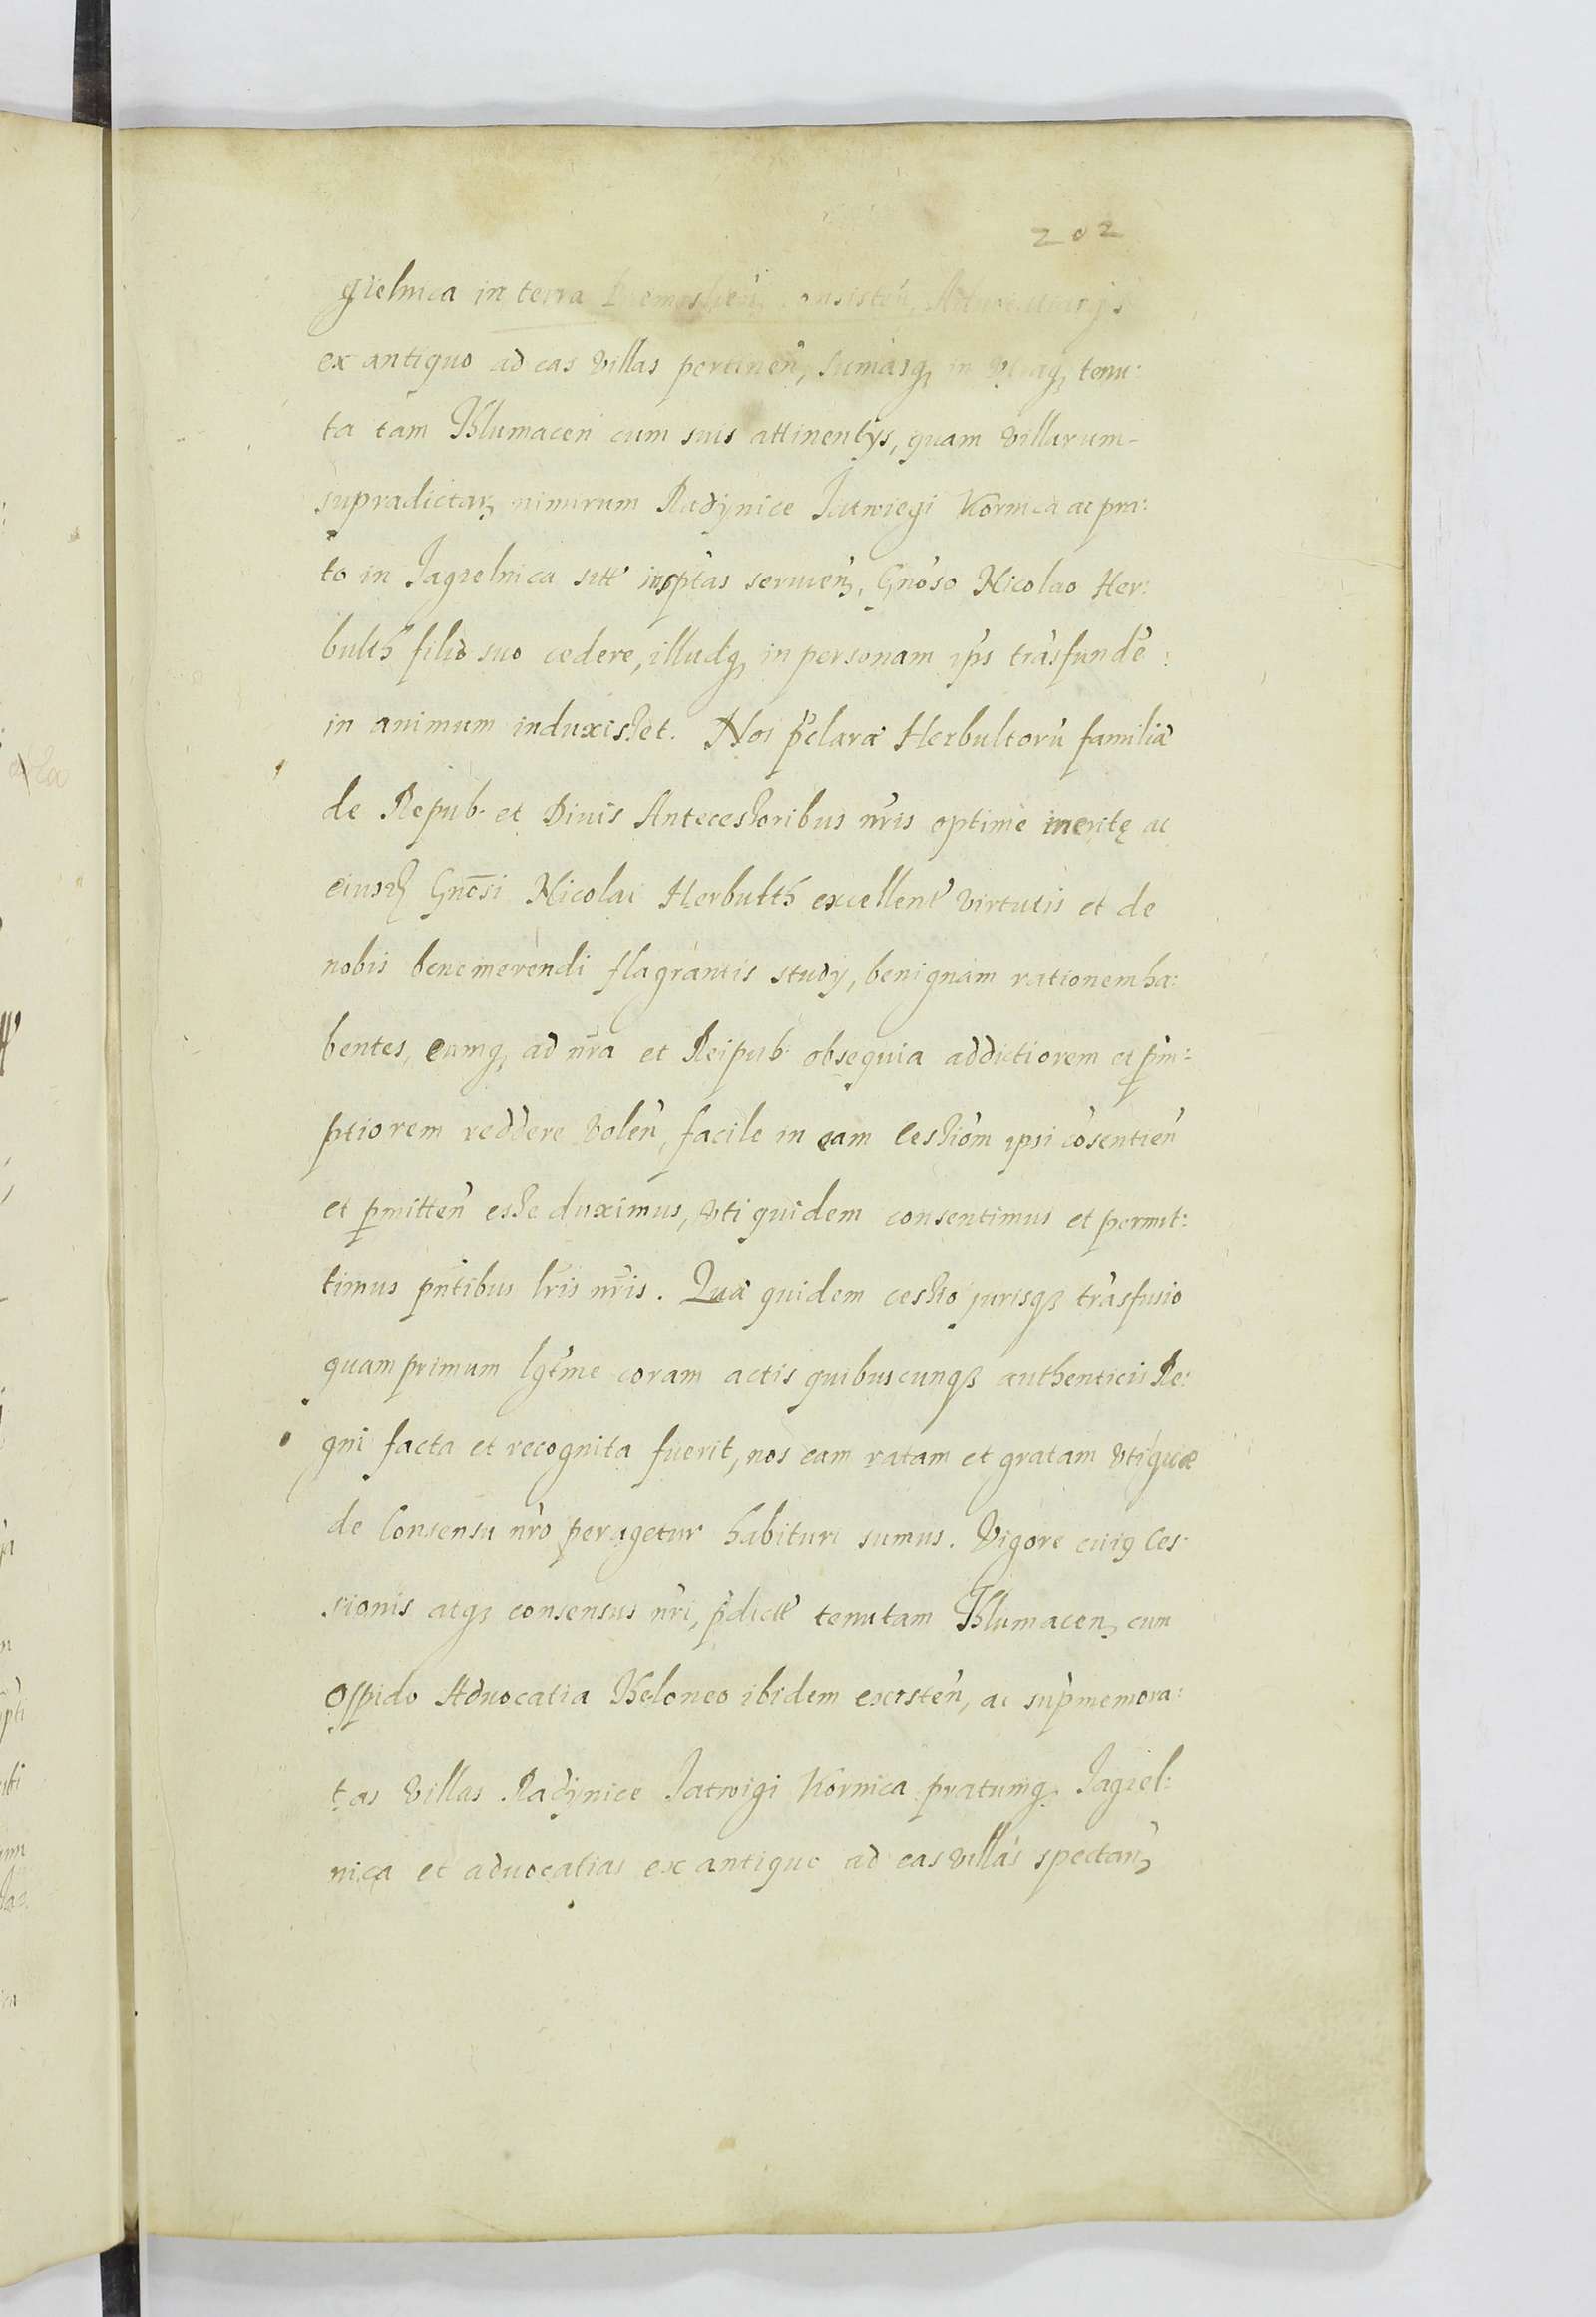 202
gielnica in terra
ex antiquo ad eas villas pertineñ, sumasq, in tenu:
ta tam Thlumaceñ cum suis attinentys, quam villarum-
supradictarz nimirum Radynice Jatwiegi Kornica ac pra:
to in Jagielnica sitt insptas seruieñ, Gnoso Nicolao Her:
bulth filio suo cedere, illudq, in personam ips trāsfundē:
in animum induxisset. Nos p̃claræ Herbultorū familiæ
de Repub. et Diuis Antecessoribus nr̃is optimè meritę ac
eiusd Gnōsi Nicolai Herbulth excellent virtutis et de
nobis benemerendi flagrantis study, benignam rationem ha:
bentes, eumq, ad nr̃a et Reipub. obsequia addictiorem et pm:
ptiorem reddere voleñ, facile in eam Cessiōm ipsi cōsentieñ
et pmitteñ esse duximus, vti quidem consentimus et permit:
timus pñtibus lr̃is nr̃is. Quæ quidem cessio jurisq3 trāsfusio
quamprimum lgt̃me coram actis quibuscunq3 authenticis Re:
gni facta et recognita fuerit, nos eam ratam et gratam vti quæ
de Consensu nr̃o peragetur habituri sumus. Vigore cuig Ces:
sionis atq3 consensus nr̃i, p̃dictt tenutam Thlumaceñ cum
Oppido Aduocatia Theloneo ibidem existeñ, ac sup̃memora:
tas villas Radynice Jatwigi Kornica pratumq, Jagiel:
nica et aduocatias ex antiquo ad eas villas spectañ